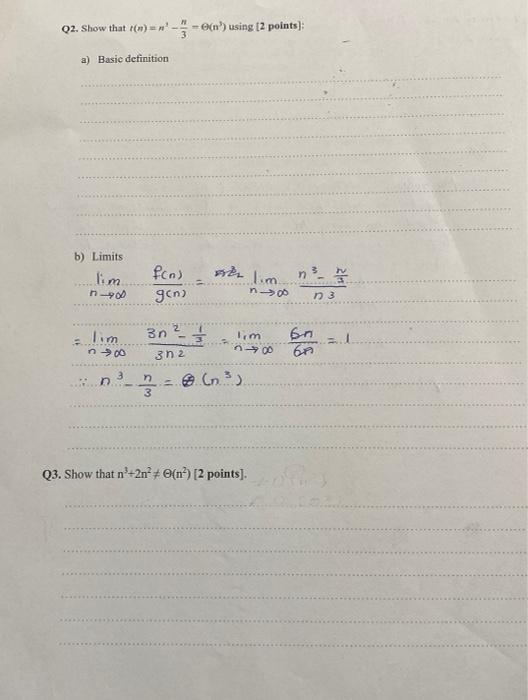 Q2. Show that t(n) = n³ − n/3 = Θ(n³) using [2 points]:
a) Basic definition
b) Limits
lim n→∞ f(n)/g(n) = lim n→∞ (n³ − n/3)/n3
= lim n→∞ (3n² − 1/3)/3n2 = lim n→∞ 6n/6n = 1
∵ n³ − n/3 = Θ(n³)
Q3. Show that n³+2n² ≠ Θ(n²) [2 points].